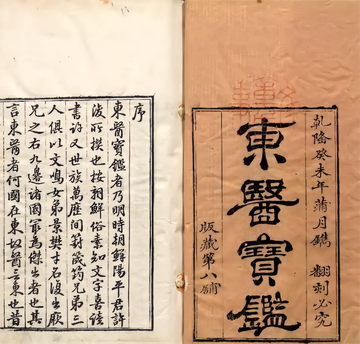 乾隆癸未年蒲月鐫 翻刻必究
東醫寶鑑
版藏第八鋪
序
東醫寶鑑者乃明時朝鮮陽平君許
浚所撰也按朝鮮俗素知文字喜讀
書許又世族萬歷間葑筬筠兄弟三
人俱以文鳴女弟景樊才名復出厥
兄之右九邊諸國㝡為傑出者也其
言東醫者何國在東故醫言東也昔